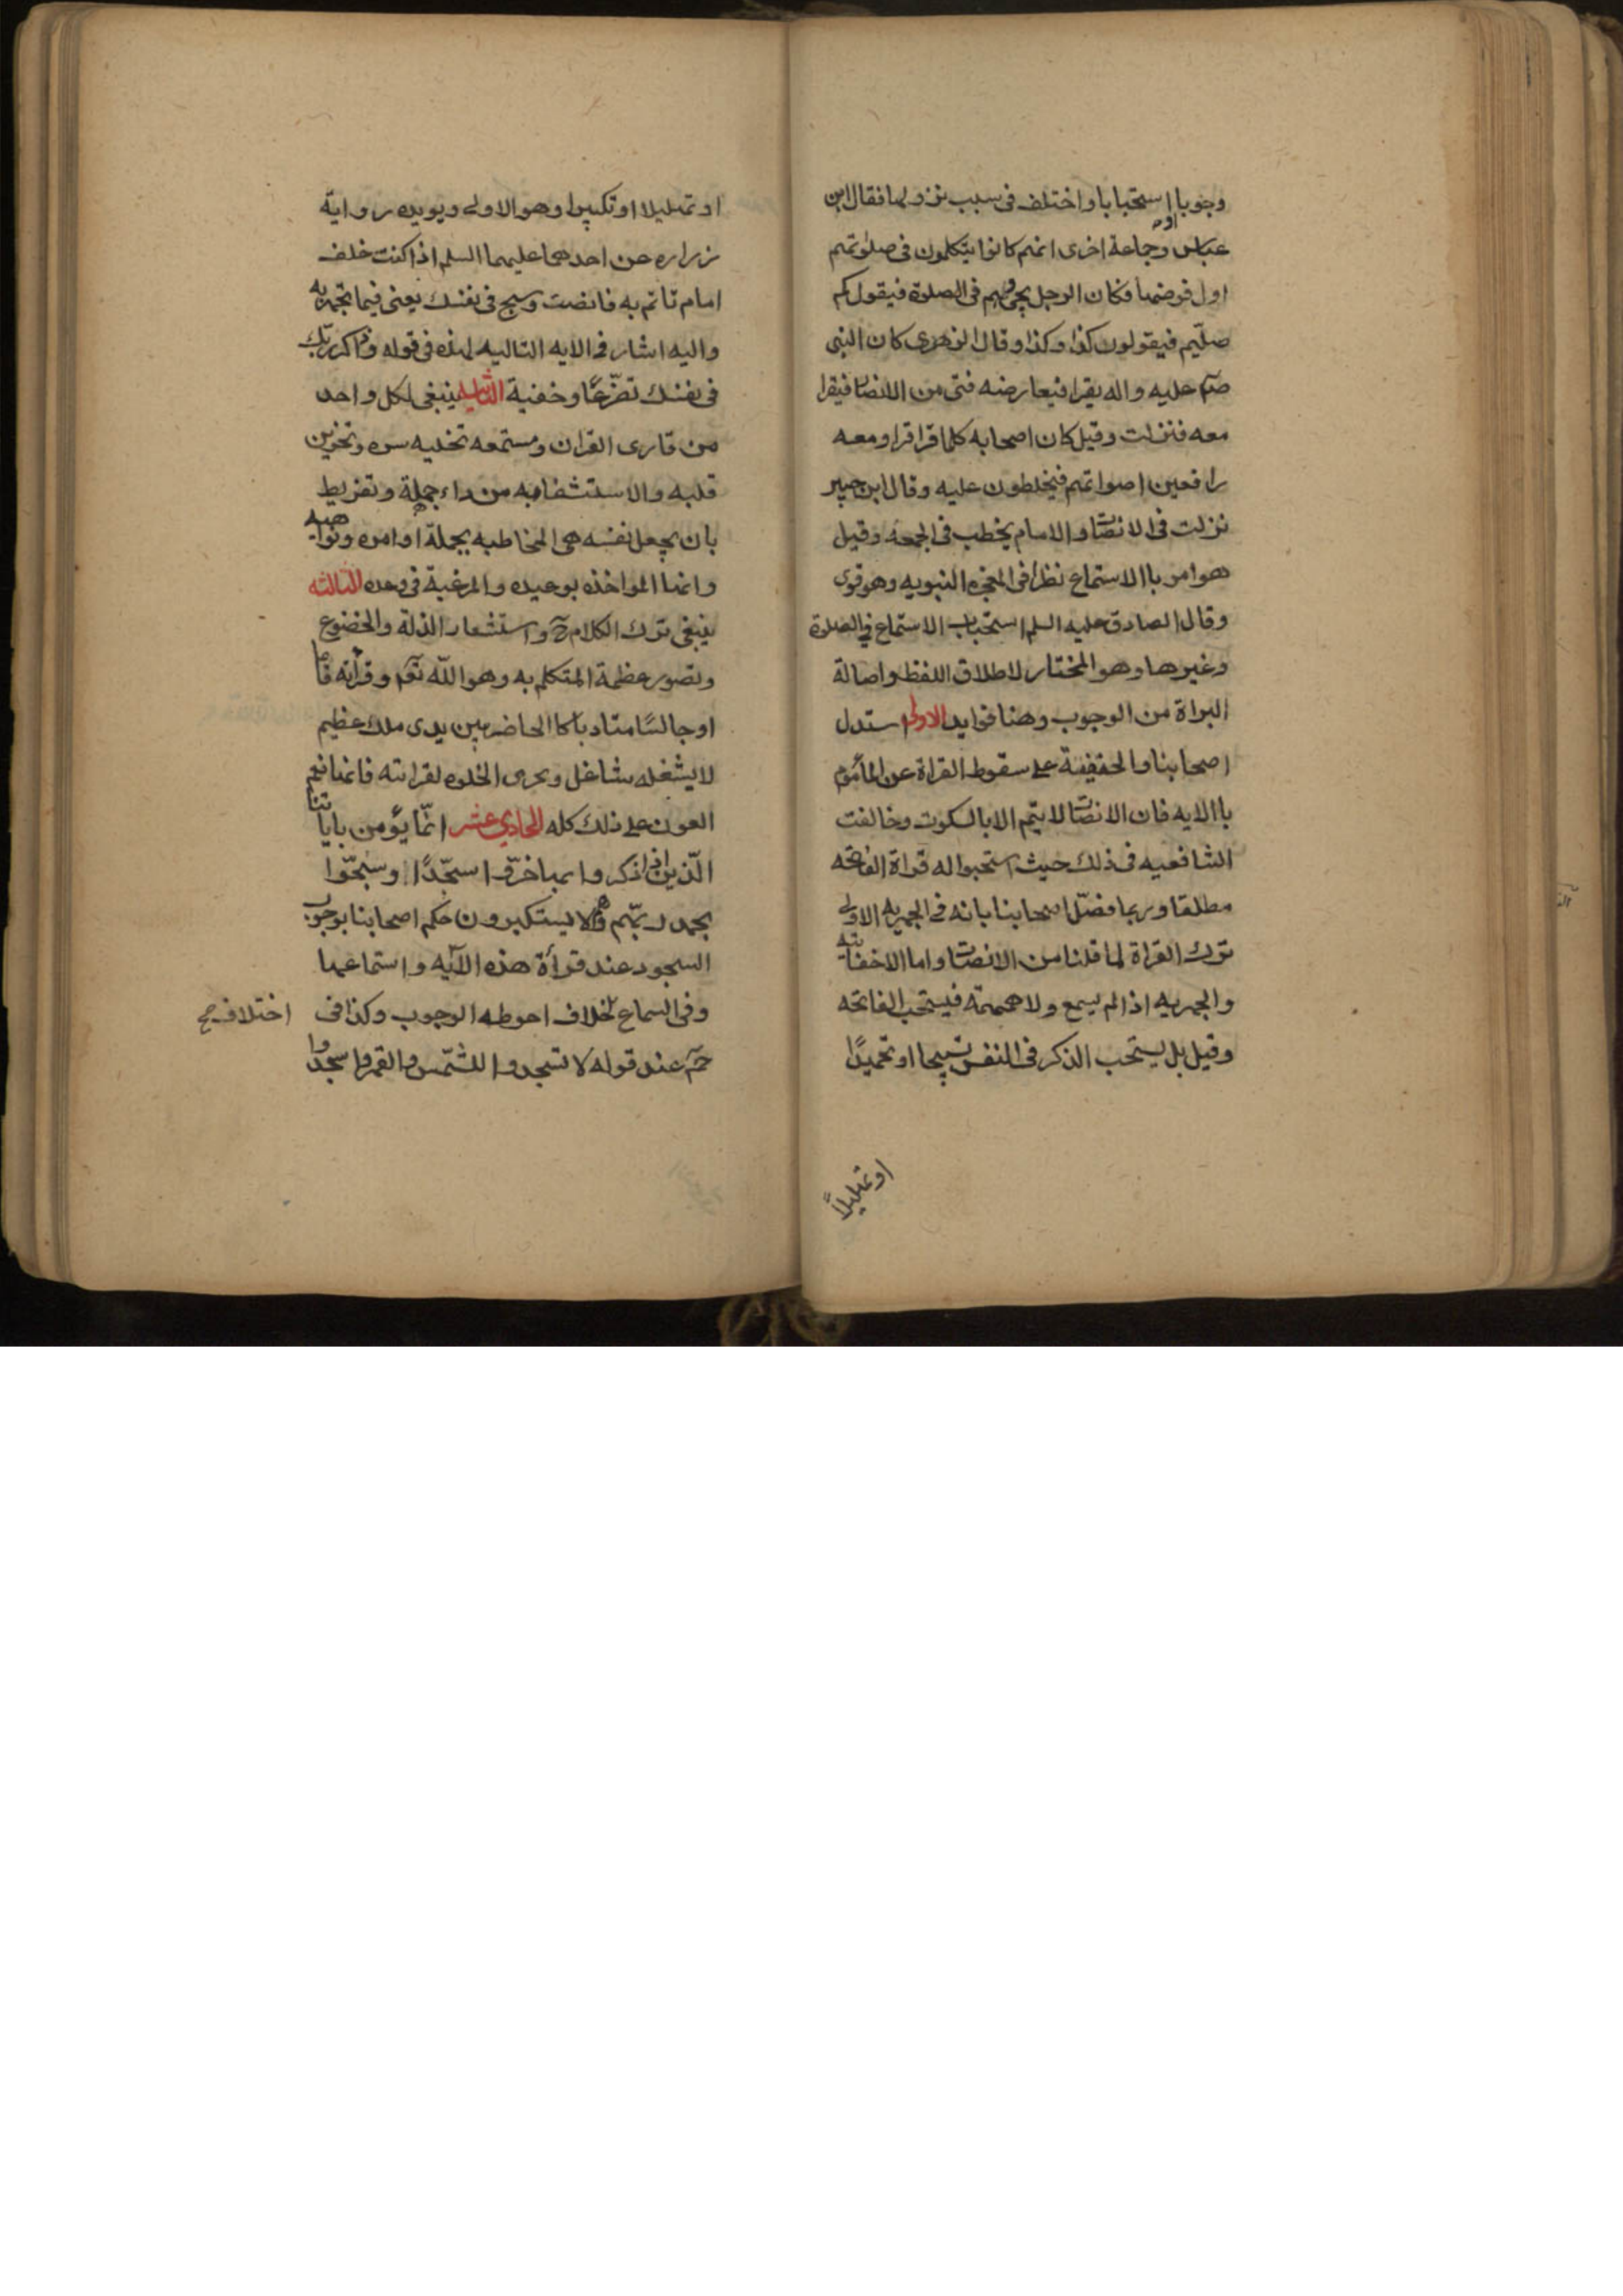 وجوبا او استحبابا واختلف في سبب نزولها فقال ابن
عباس وجماعة اخرى انهم كانوا يتكلمون في صلوتهم
اول فرضها فكان الرجل يجئ وهم في الصلوة فيقول كم
صلّيتم فيقولون كذا وكذا وقال الزهرى كان النبى
صم عليه واله يقرا فيعارضه فتى من الانصار فيقرا
معه فنزلت وقيل كان اصحابه كلما قرا قراو معه
رافعين اصواتهم فيخلطون عليه وقال ابن جبير
نزلت في الانصات والامام يخطب في الجمعه وقيل
هو امر باالاستماع نظرا في المعجزه النبويه وهو قوى
وقال الصادق عليه السلم استحباب الاستماع في الصلوة
وغيرها وهو المختار لاطلاق اللفظ واصالة
البراة من الوجوب وهنا فوايد الاولى استدل
اصحابنا والحنفية على سقوط القراة عن المأموم
باالايه فان الانصات لا يتم الا بالسكوت وخالفت
الشافعيه في ذلك حيث استحبوا له قراة الفاتحه
مطلقا وربما فصّل اصحابنا بانه في الجهريه الاولى
ترك القراة لما قلنا من الانصات واما الاخفاتيه
والجهريه اذا لم يسمع ولا همهمة فيستحب الفاتحه
وقيل بل يستحب الذكر في النفس تسبيحا او تحميدًا
او تهليلاً
او تهليلا او تكبيرا وهو الاولى ويويده رواية
زراره عن احدهما عليهما السلم اذا كنت خلف
امام تاتم به فانصت وسبح في نفسك يعنى فيما تجهر به
واليه اشار في الايه التاليه لهذه في قوله واذكر ربّك
في نفسك تضرّعًا وخفية الثانيه ينبغي لكل واحد
من قارى القران ومستمعه تخليه سره وتحزين
قلبه والاستشفا به من داء جهله وتفريط
بان يجعل نفسه هى المخاطبه بجملة اوامره ونواهيه
وانها المواخذه بوعيده والمرغبة في وعده الثالثه
ينبغى ترك الكلام ح واستشعار الذلة والخضوع
وتصور عظمة المتكلم به وهو الله تعم وقرأته قاما
او جالسًا متادبا كا الحاضر بين يدى ملك عظيم
لا يشغله شاغل وتحرى الخلوه لقراته فانها نعم
العون على ذلك كله الحادي عشر انّما يؤمن باياتنا
الّذين اذا ذكروا بها خرّوا سجّدًا وسبّحوا
بحمد ربّهم وهم لا يستكبرون حكم اصحابنا بوجوب
السجود عند قرأة هذه الآيه واستماعها
وفي السماع خلاف احوطه الوجوب وكذا في
اختلاف صح
حم عند قوله لا تسجدوا للشّمس والقمر واسجدوا